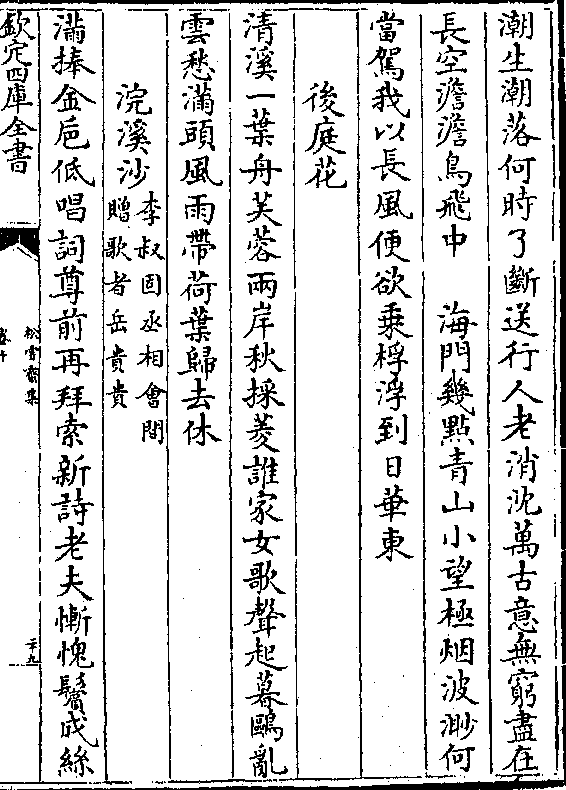 潮生潮落何時了斷送行人老消沈萬古意無窮盡在
長空澹澹鳥飛中　海門幾點青山小望極烟波渺何
當駕我以長風便欲乗桴浮到日華東
後庭花
清溪一葉舟芙蓉兩岸秋採菱誰家女歌聲起暮鷗亂
雲愁滿頭風雨帶荷葉歸去休
浣溪沙
李叔固丞相會間
贈歌者岳貴貴
滿捧金巵低唱詞尊前再拜索新詩老夫慚愧鬢成絲
欽定四庫全書
松雪齋集
卷十
二十九